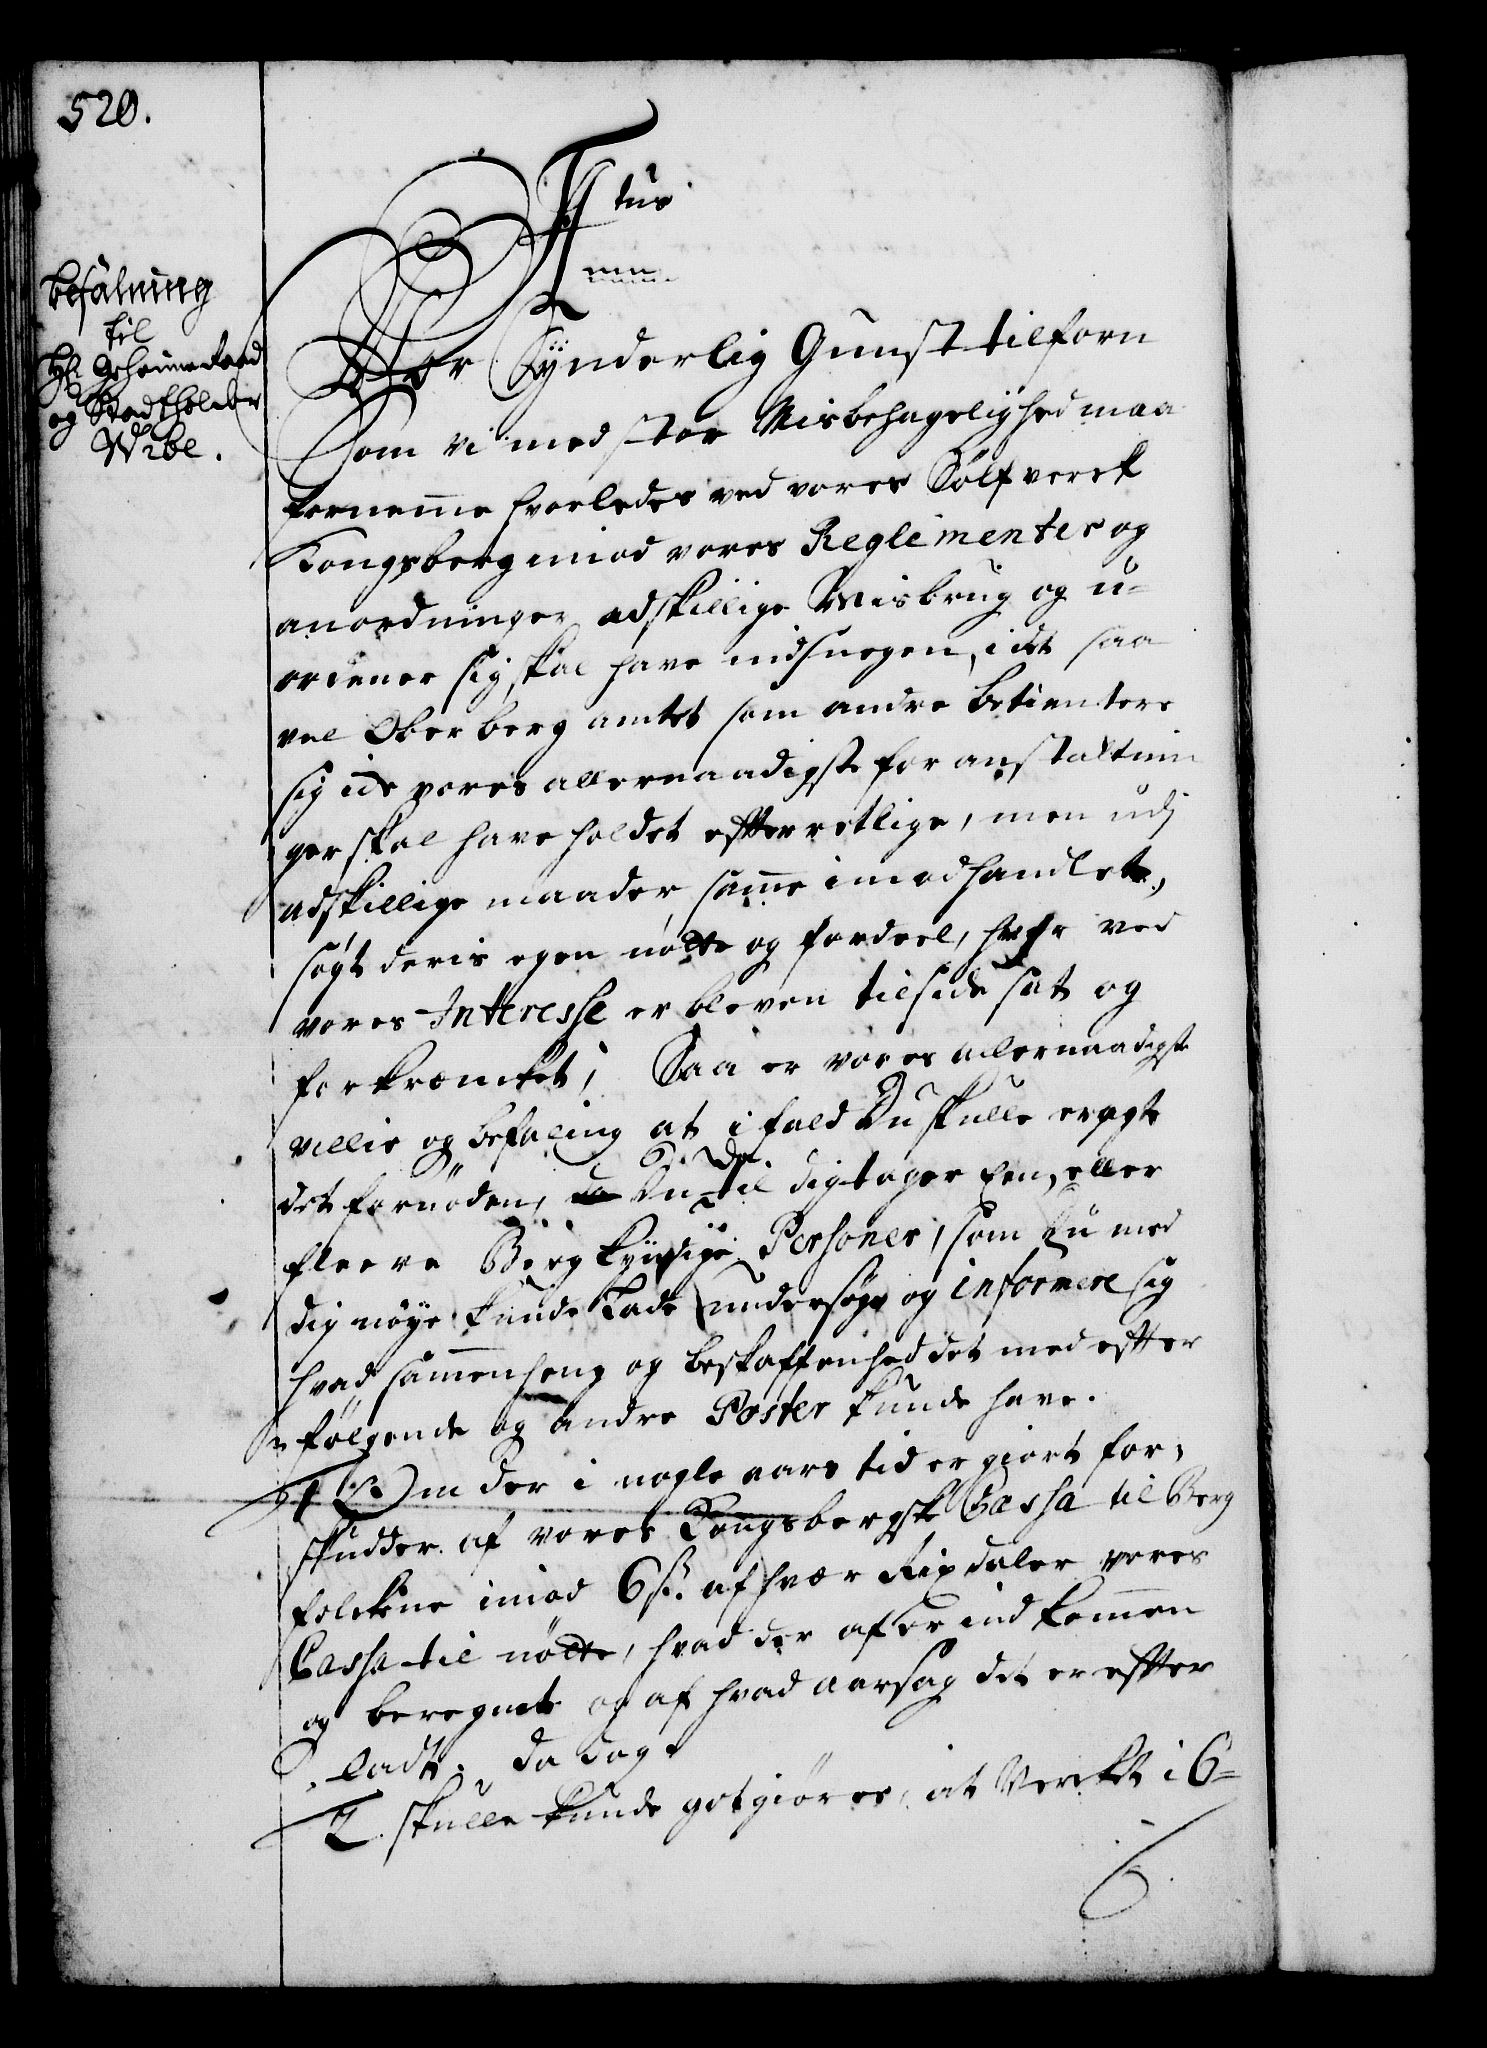 520.
F4tus
Befalning
til
Hl. Geheimeraad
og Stadtholder
Wibe.
Vor Synderlig Gunst tilforn
Som vi med stor Misbehagelighed maa
fornemme hvorledes ved vores Sølfverck
Kongsberg imod vores Reglementer og
anordninger adskillige Misbrug og u-
ordener sig skal have indsnegen, i det saa
vel Oberberg amtet som andre betientere
sig ide vores allernaadigste foranstaltnin
ger skal have holdet efterretlige, men udj
adskillige maader samme imodhandlet,
søgt deris egen nøtte og fordeel, hvor ved
vores Interesse er bleven tilside sat og
forkræncket; Saa er vores allernaadigste
villie og befaling at ifald Du skulle eragte
det fornøden, Du til dig tager Een, eller
fleere Bergkyndige Personer, som Du med
dig nøye kunde lade undersøge og informere sig
hvad sammenheng og beskaffenhed det med efter
følgende og andre Poster kunde have.
1 Om der i nogle aars tid er giort for-
skudder af vores Kongsbergske Cassa til Berg
folckene imod 6 ß. af hver Rixdaler vores
Cassa til nøtte, hvad der af er indkommen
og beregnet og af hvad aarsag det er efter
ladt; da dog
2. skulle kunde gotgiøres, at Verket i 6-